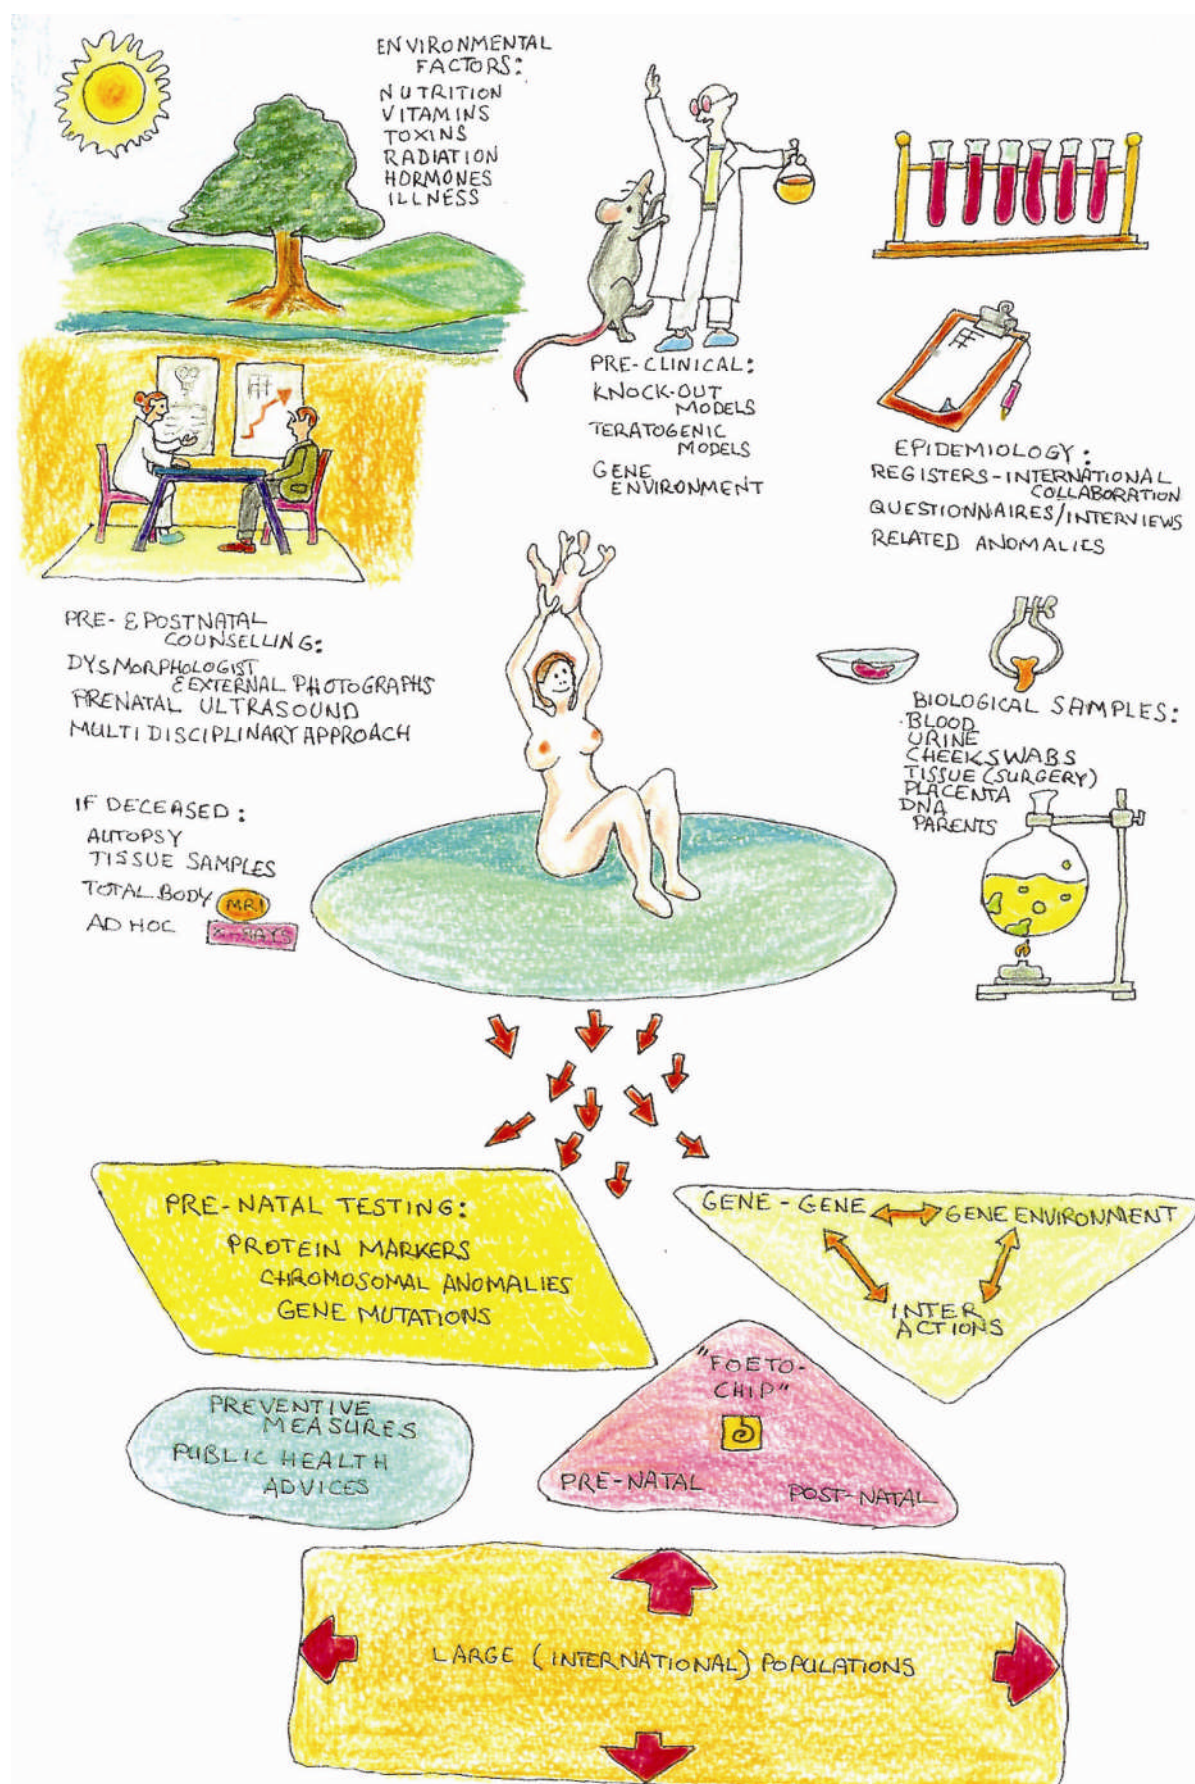 ENVIRONMENTAL
FACTORS:
NUTRITION
VITAMINS
TOXINS
RADIATION
HORMONES
ILLNESS
PRE-CLINICAL:
KNOCK-OUT
MODELS
TERATOGENIC
MODELS
GENE
ENVIRONMENT
EPIDEMIOLOGY:
REGISTERS-INTERNATIONAL
COLLABORATION
QUESTIONNAIRES/INTERVIEWS
RELATED ANOMALIES
PRE- & POSTNATAL
COUNSELLING:
DYSMORPHOLOGIST
& EXTERNAL PHOTOGRAPHS
PRENATAL ULTRASOUND
MULTIDISCIPLINARY APPROACH
BIOLOGICAL SAMPLES:
BLOOD
URINE
CHEEKSWABS
TISSUE (SURGERY)
PLACENTA
DNA
PARENTS
IF DECEASED:
AUTOPSY
TISSUE SAMPLES
TOTAL BODY MRI
AD HOC X-RAYS
PRE-NATAL TESTING:
PROTEIN MARKERS
CHROMOSOMAL ANOMALIES
GENE MUTATIONS
GENE-GENE GENE ENVIRONMENT
INTER
ACTIONS
"FOETO-
CHIP"
PRE-NATAL POST-NATAL
PREVENTIVE
MEASURES
PUBLIC HEALTH
ADVICES
LARGE (INTERNATIONAL) POPULATIONS